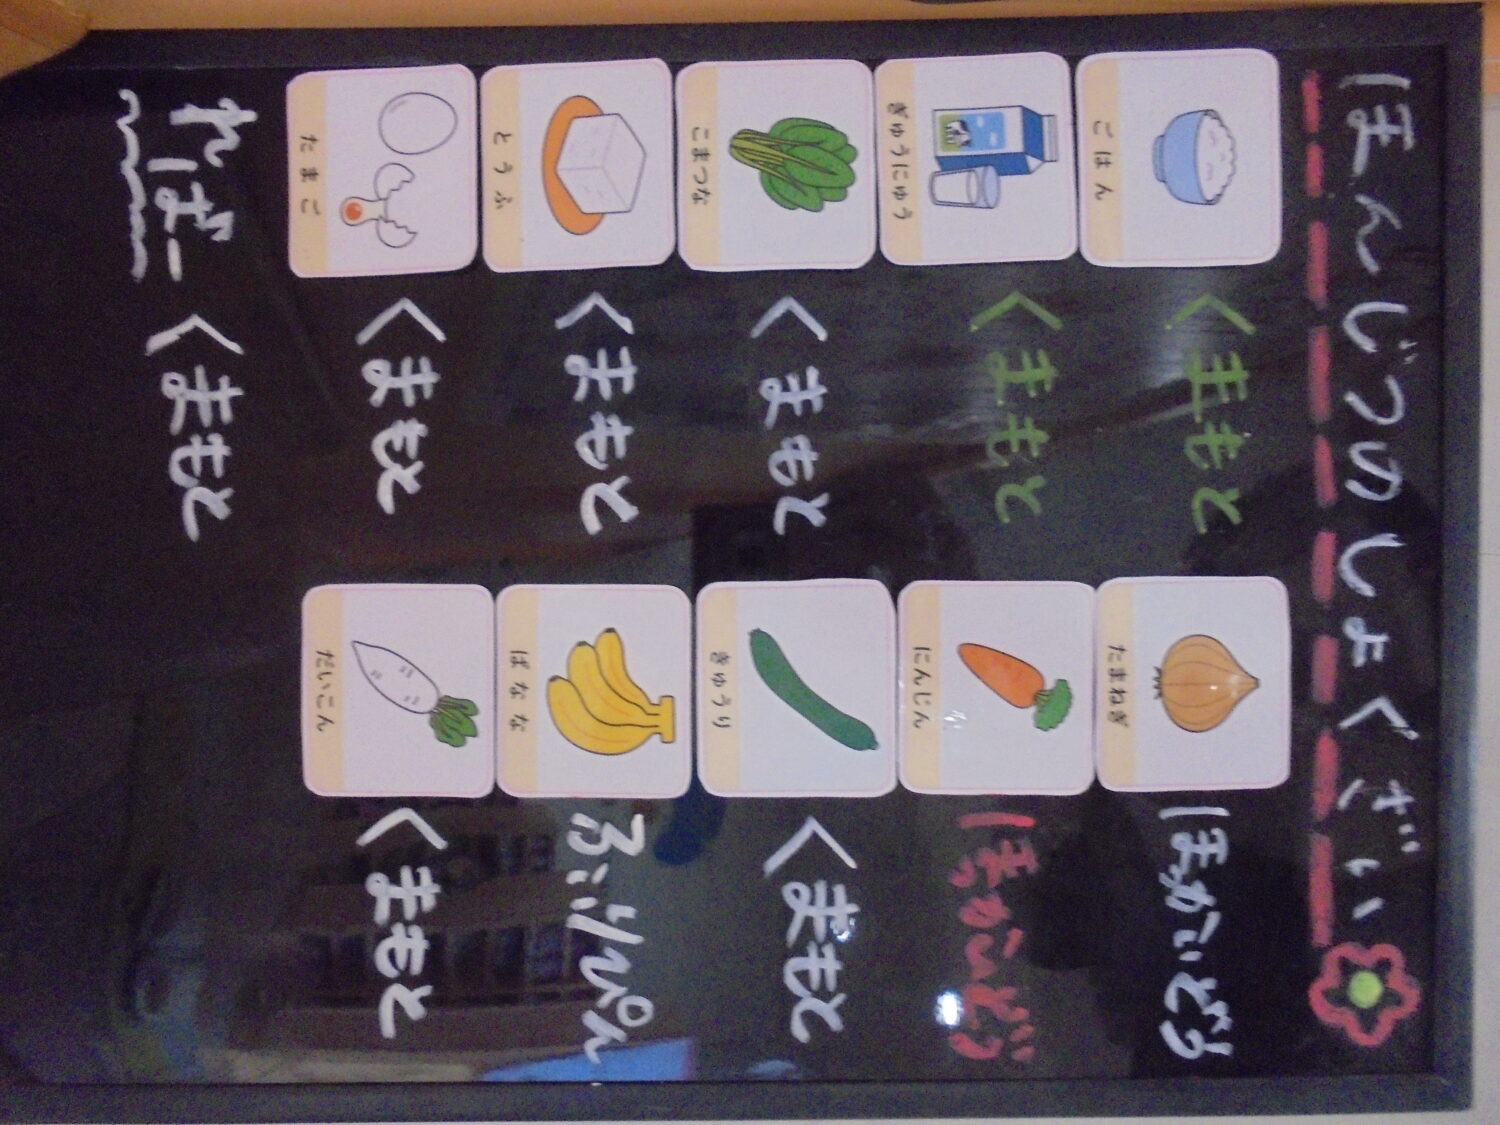 ほんじつのしょくざい
ごはん くまもと
ぎゅうにゅう くまもと
こまつな くまもと
とうふ くまもと
たまご くまもと
ればー くまもと
たまねぎ ほっかいどう
にんじん ほっかいどう
きゅうり くまもと
ばなな ふぃりぴん
だいこん くまもと